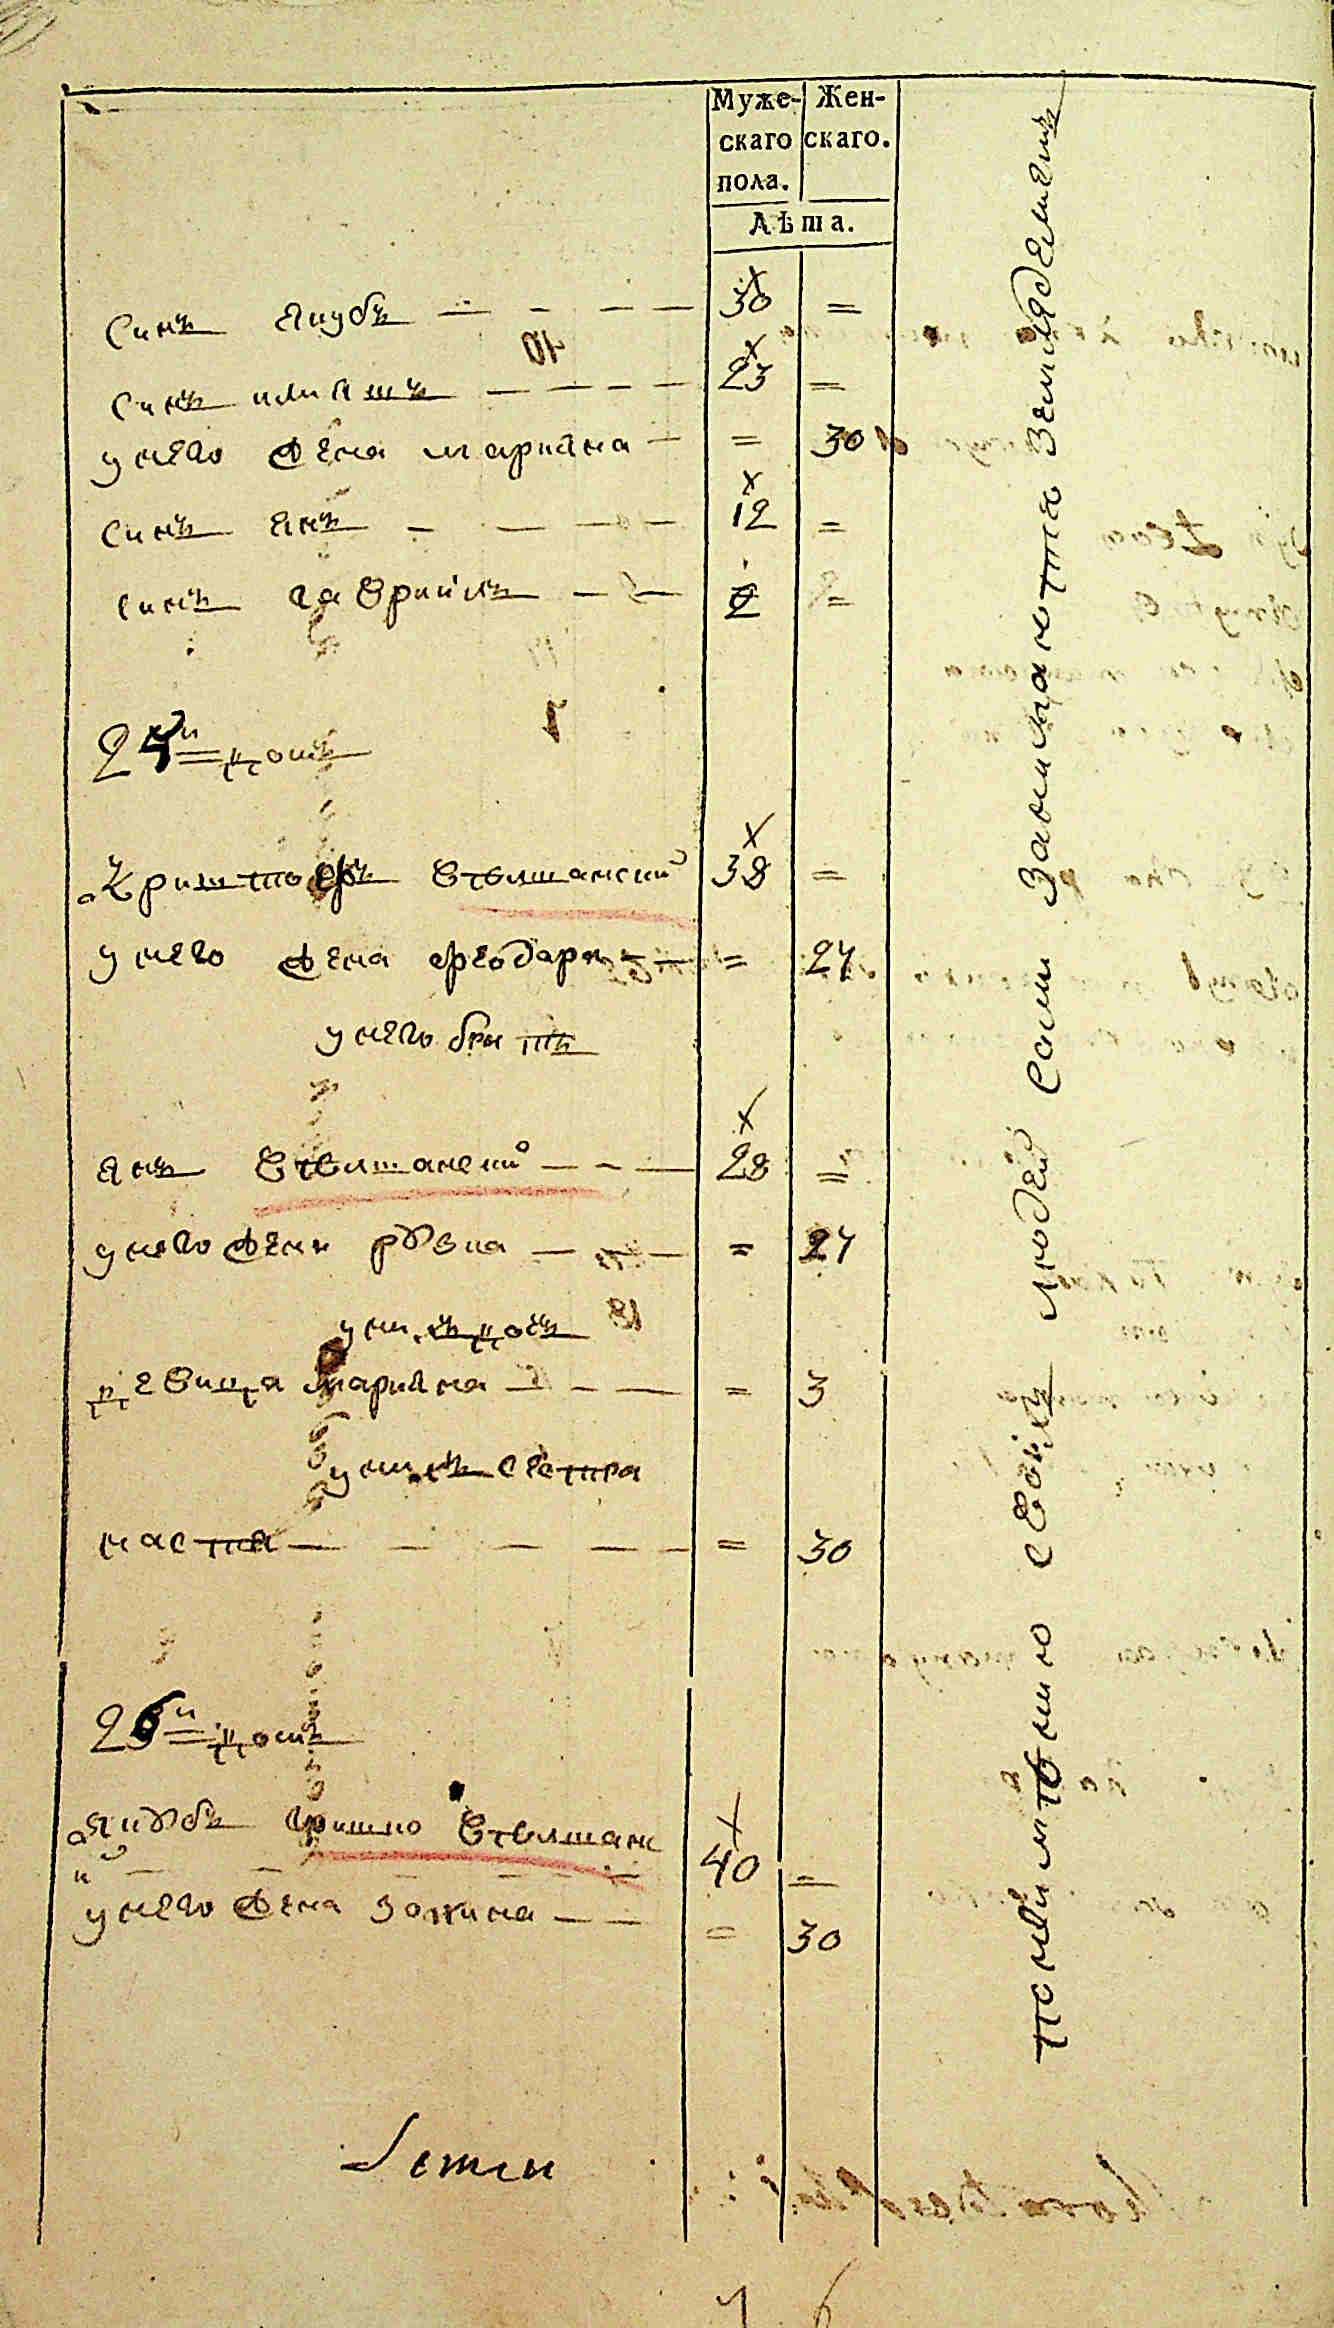 Муже-
скаго
пола.
Жен-
скаго.
Лѣта.
Синъ Якубъ — — — — 30 =
Синъ илиашъ — — — — 23 =
у него жена марияна — = 30
Синъ янъ — — — — 12 =
синъ гаврийлъ — — 2 =
24й домъ
Криштофъ Ствишанский 38 =
у него жена феодора — — = 24
у него братъ
янъ Ствишанский — — — 28 =
у него жена рузка — — — = 24
у нихъ дочь
девица марияна — — — = 3
у нихъ сестра
настя — — — — — = 30
25й домъ
якубъ гришко Ствишанс
кий — — — — — 40 =
у него жена зофина — — = 30
помѣшичию своихъ людей сами занимаются земледелиемъ